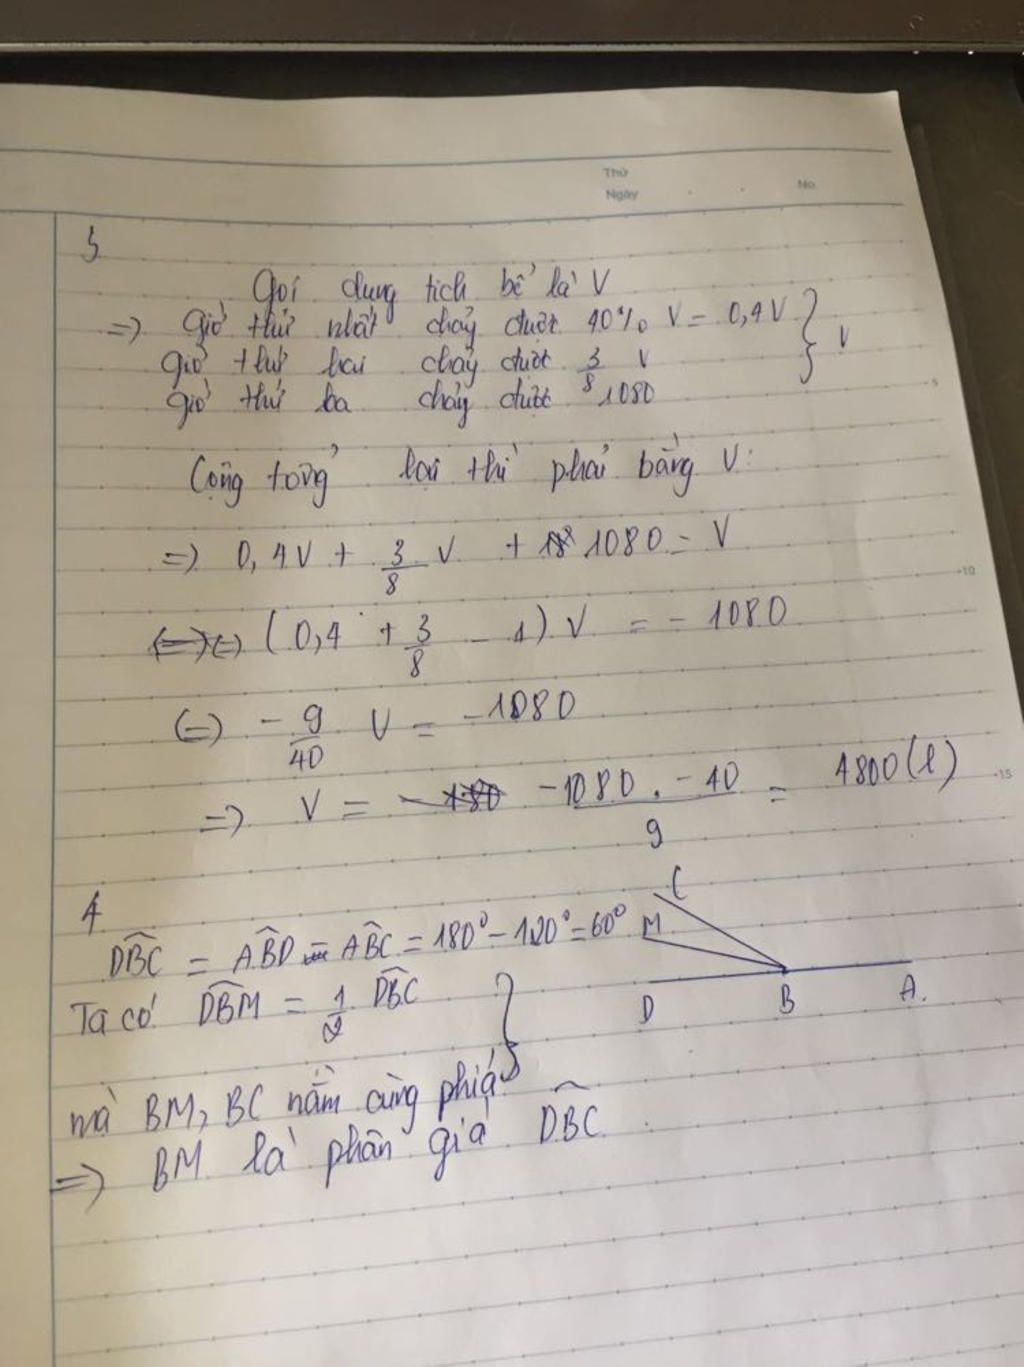 Thứ
Ngày
No.
3
Gọi dung tích bể là V
=> Giờ thứ nhất chảy được 40% V = 0,4V
giờ thứ hai chảy được 3/8 V
giờ thứ ba chảy được 1080
} V
Cộng tổng lại thì phải bằng V:
=> 0,4V + 3/8 V + 1080 = V
(=) (0,4 + 3/8 - 1) V = - 1080
(=) - 9/40 V = -1080
=> V = -1080 . -40 / 9 = 4800 (l)
5
10
15
4
DBC = ABD - ABC = 180° - 120° = 60°
Ta có DBM = 1/2 DBC
mà BM, BC nằm cùng phía
=> BM là phân giá DBC
C
M
D B A.